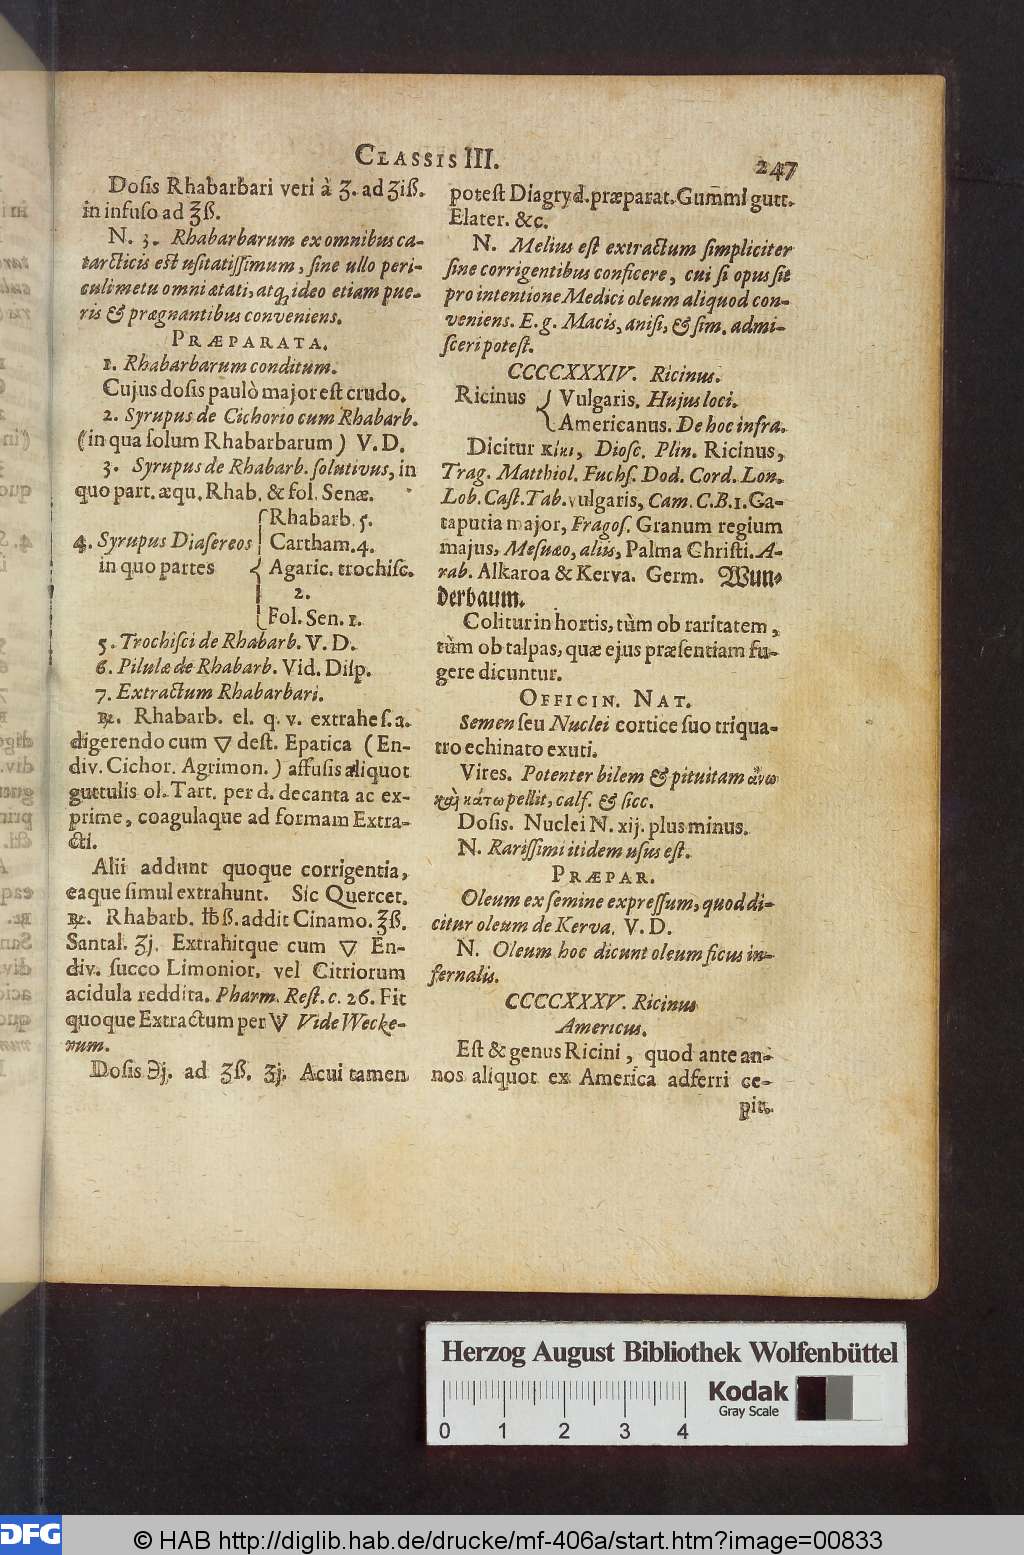 CLASSIS III.
247
Dosis Rhabarbari veri à ʒ. ad ʒiß.
in infuso ad ℥ß.
N. 3. Rhabarbarum ex omnibus ca-
tarcticis est usitatissimum, sine ullo peri-
culi metu omni ætati, atq; ideo etiam pue-
ris & prægnantibus conveniens.
PRÆPARATA.
1. Rhabarbarum conditum.
Cujus dosis paulò major est crudo.
2. Syrupus de Cichorio cum Rhabarb.
(in qua solum Rhabarbarum) V. D.
3. Syrupus de Rhabarb. solutivus, in
quo part. æqu. Rhab. & fol. Senæ.
Rhabarb. 5.
4. Syrupus Diasereos Cartham. 4.
in quo partes Agaric. trochisc.
2.
Fol. Sen. 1.
5. Trochisci de Rhabarb. V. D.
6. Pilulæ de Rhabarb. Vid. Disp.
7. Extractum Rhabarbari.
℞. Rhabarb. el. q. v. extrahe s. a.
digerendo cum ▽ dest. Epatica (En-
div. Cichor. Agrimon.) affusis aliquot
guttulis ol. Tart. per d. decanta ac ex-
prime, coagulaque ad formam Extra-
cti.
Alii addunt quoque corrigentia,
eaque simul extrahunt. Sic Quercet.
℞. Rhabarb. ℔ß. addit Cinamo. ℥ß.
Santal. ʒj. Extrahitque cum ▽ En-
div. succo Limonior. vel Citriorum
acidula reddita. Pharm. Rest. c. 26. Fit
quoque Extractum per Vide Wecke-
rum.
Dosis ℈j. ad ʒß. ʒj. Acui tamen
potest Diagryd. præparat. Gum̄i gutt.
Elater. &c.
N. Melius est extractum simpliciter
sine corrigentibus conficere, cui si opus sit
pro intentione Medici oleum aliquod con-
veniens. E. g. Macis, anisi, & sim. admi-
sceri potest.
CCCCXXXIV. Ricinus.
Ricinus Vulgaris. Hujus loci.
Americanus. De hoc infra.
Dicitur κίκι, Diosc. Plin. Ricinus,
Trag. Matthiol. Fuchs. Dod. Cord. Lon.
Lob. Cast. Tab. vulgaris, Cam. C. B. 1. Ca-
taputia major, Fragos. Granum regium
majus, Mesuæo, aliis, Palma Christi. A-
rab. Alkaroa & Kerva. Germ. Wun-
derbaum.
Colitur in hortis, tùm ob raritatem,
tùm ob talpas, quæ ejus præsentiam fu-
gere dicuntur.
OFFICIN. NAT.
Semen seu Nuclei cortice suo triqua-
tro echinato exuti.
Vires. Potenter bilem & pituitam ἄνω
καὶ κάτω pellit, calf. & sicc.
Dosis. Nuclei N. xij. plus minus.
N. Rarissimi itidem usus est.
PRÆPAR.
Oleum ex semine expressum, quod di-
citur oleum de Kerva. V. D.
N. Oleum hoc dicunt oleum ficus in-
fernalis.
CCCCXXXV. Ricinus
Americus.
Est & genus Ricini, quod ante an-
nos aliquot ex America adferri cœ-
pit.
Herzog August Bibliothek Wolfenbüttel
0 1 2 3 4
Kodak
Gray Scale
DFG
© HAB http://diglib.hab.de/drucke/mf-406a/start.htm?image=00833